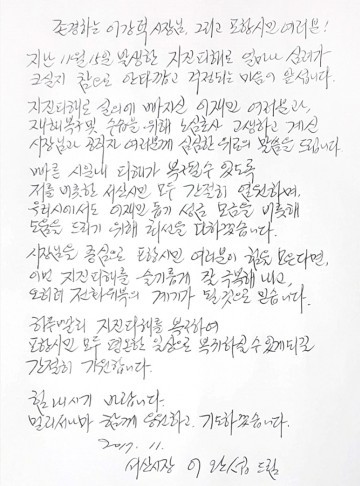 존경하는 이강덕 시장님, 그리고 포항시민 여러분!
지난 11월 15일 발생한 지진피해로 얼마나 심려가
크실지 참으로 안타깝고 걱정되는 마음이 앞섭니다.
지진피해로 실의에 빠지신 이재민 여러분과,
재해복구 및 수습을 위해 노심초사 고생하고 계신
시장님과 공직자 여러분께 심심한 위로의 말씀을 드립니다.
빠른 시일내 피해가 복구될 수 있도록
저를 비롯한 서산시민 모두 간절히 염원하며,
우리시에서도 이재민 돕기 성금 모금을 비롯해
도움을 드리기 위해 최선을 다하겠습니다.
시장님을 중심으로 포항시민 여러분이 힘을 모은다면,
이번 지진피해를 슬기롭게 잘 극복해 내고,
오히려 전화위복의 계기가 될 것으로 믿습니다.
하루빨리 지진피해를 복구하여
포항시민 모두 평온한 일상으로 복귀하실 수 있게되길
간절히 기원합니다.
힘 내시기 바랍니다.
멀리서나마 함께 응원하고, 기도하겠습니다.
2017. 11.
서산시장 이완섭 드림